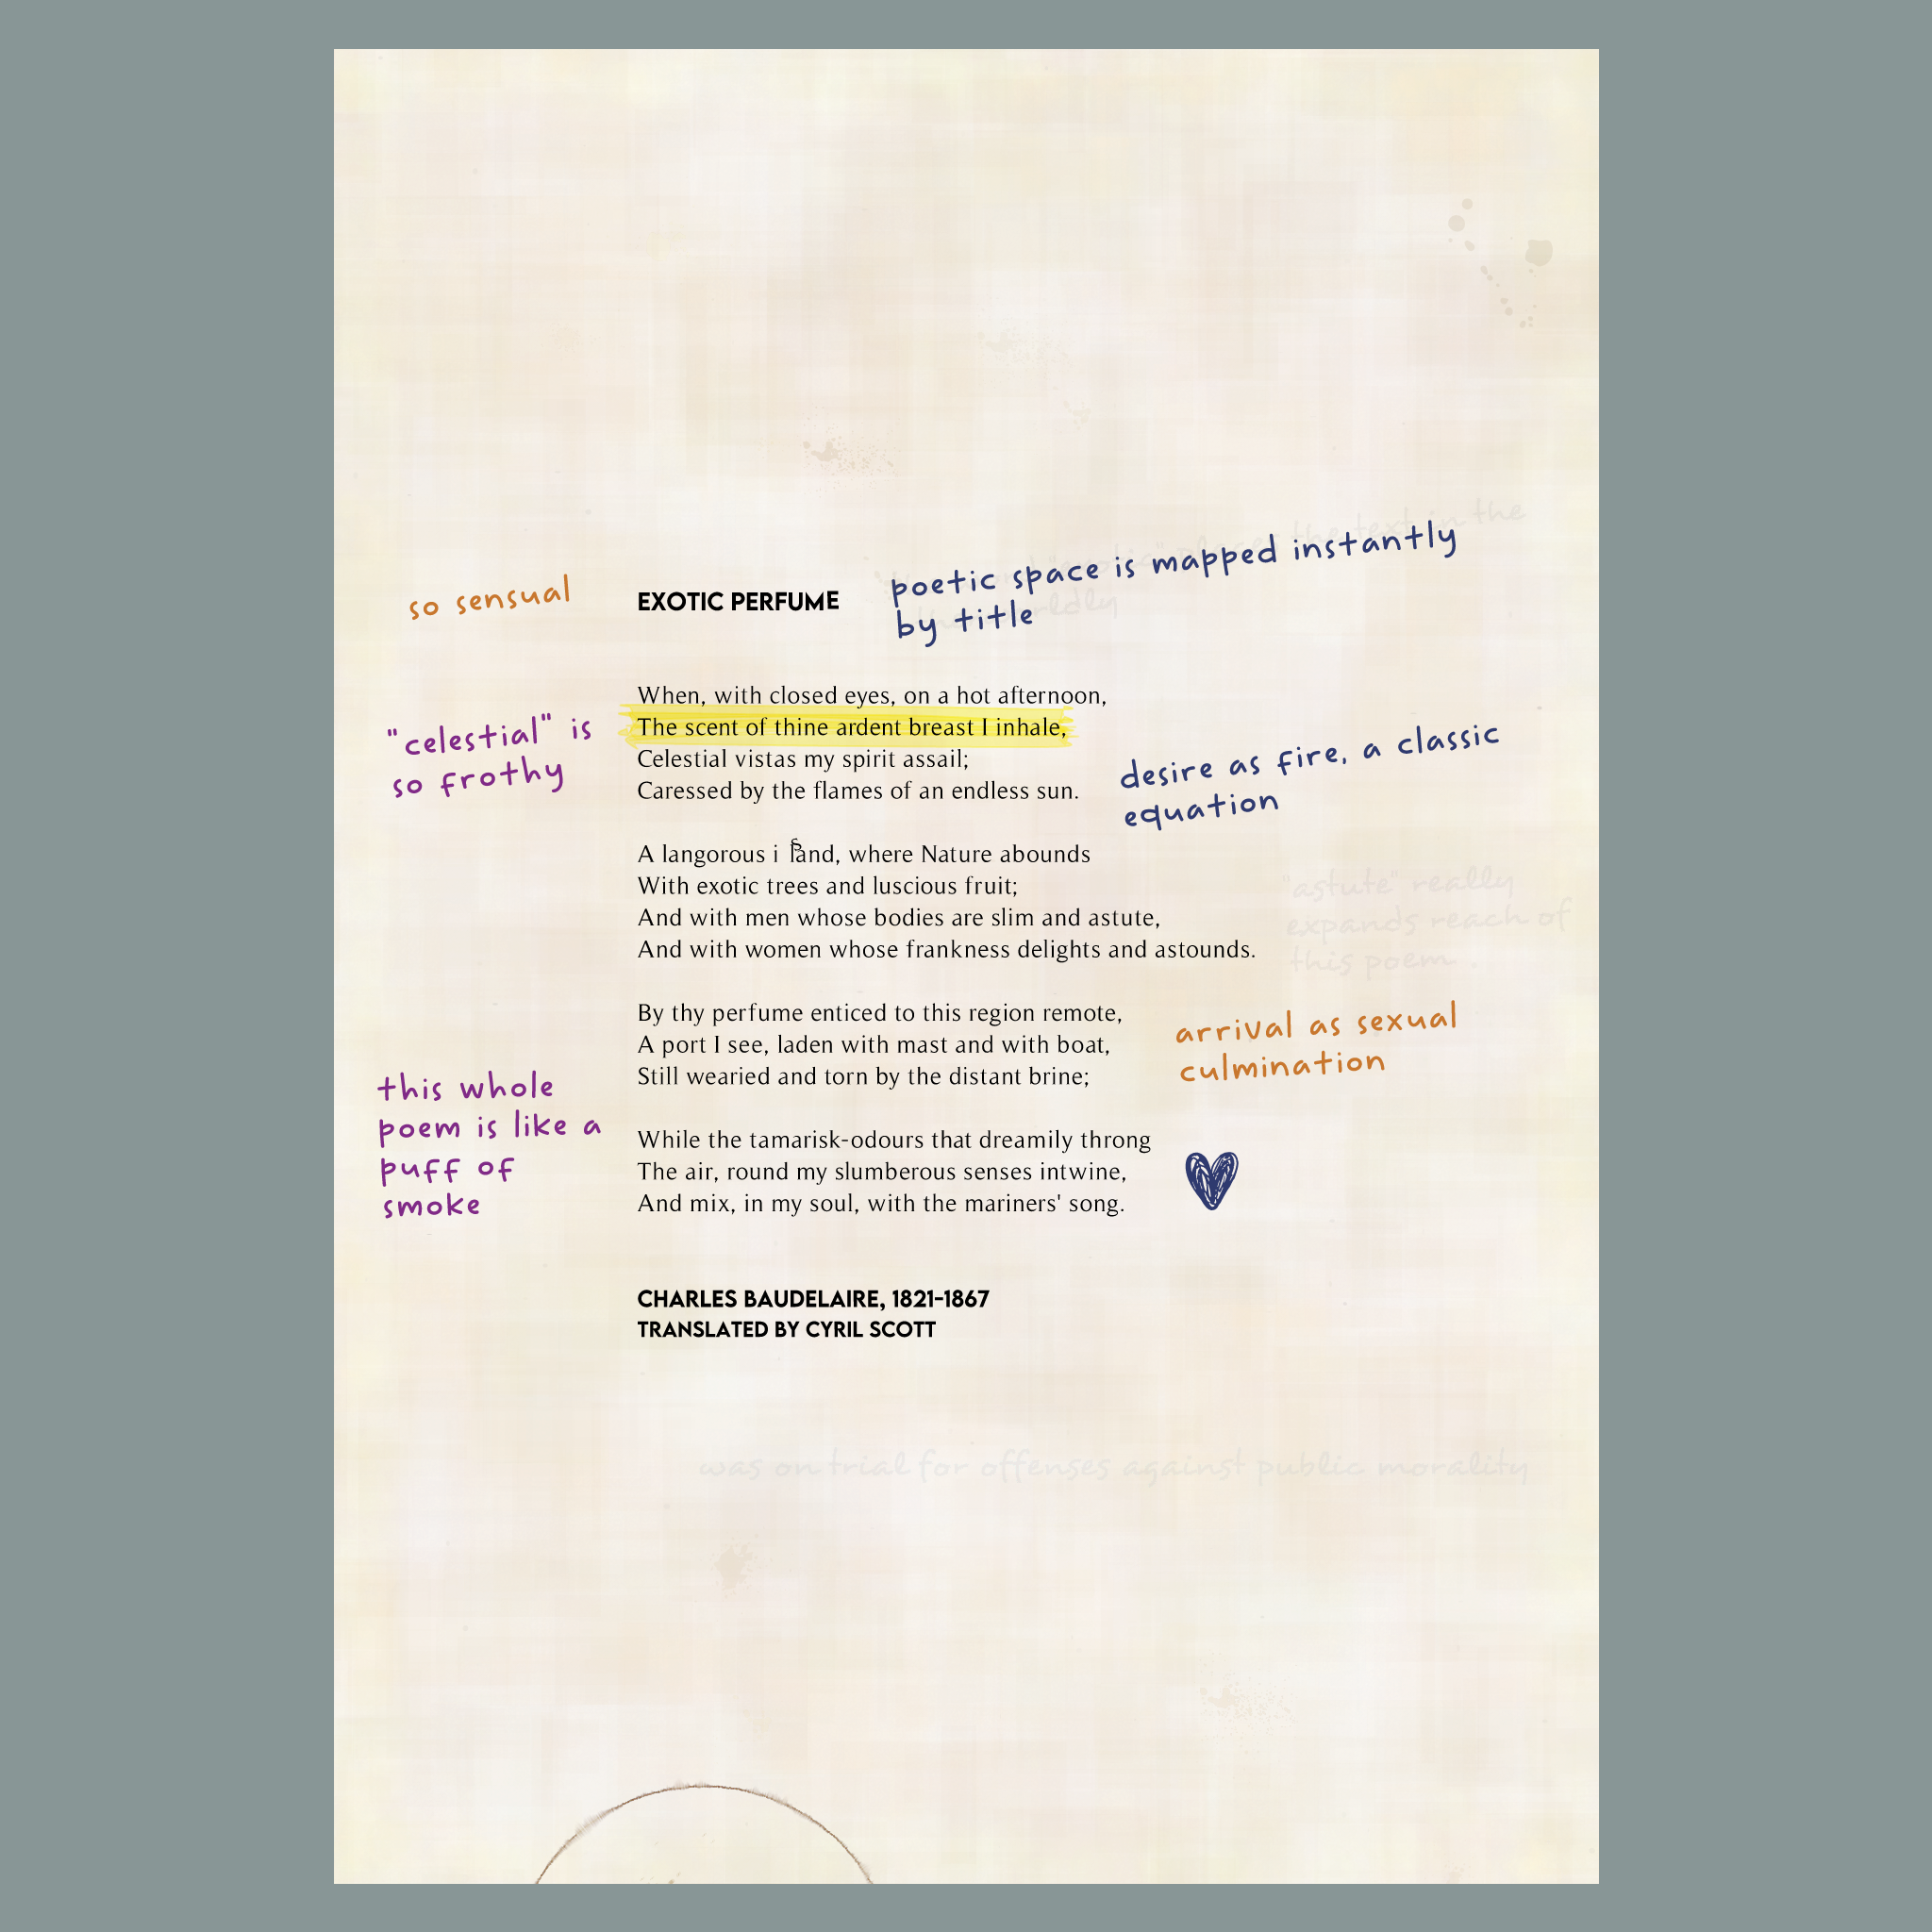 so sensual
EXOTIC PERFUME
poetic space is mapped instantly
by title
the text in the
When, with closed eyes, on a hot afternoon,
The scent of thine ardent breast I inhale,
Celestial vistas my spirit assail;
Caressed by the flames of an endless sun.
"celestial" is
so frothy
desire as fire, a classic
equation
A langorous i land, where Nature abounds
With exotic trees and luscious fruit;
And with men whose bodies are slim and astute,
And with women whose frankness delights and astounds.
"astute" really
expands reach of
this poem
By thy perfume enticed to this region remote,
A port I see, laden with mast and with boat,
Still wearied and torn by the distant brine;
arrival as sexual
culmination
this whole
poem is like a
puff of
smoke
While the tamarisk-odours that dreamily throng
The air, round my slumberous senses intwine,
And mix, in my soul, with the mariners' song.
CHARLES BAUDELAIRE, 1821-1867
TRANSLATED BY CYRIL SCOTT
was on trial for offenses against public morality